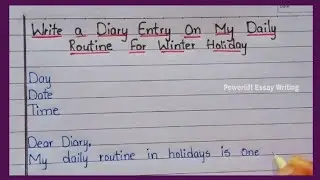 Write a Diary Entry On My Daily
Routine For Winter Holiday
Day
Date
Time
Powerlift Essay Writing
Dear Diary,
My daily routine in holidays is one